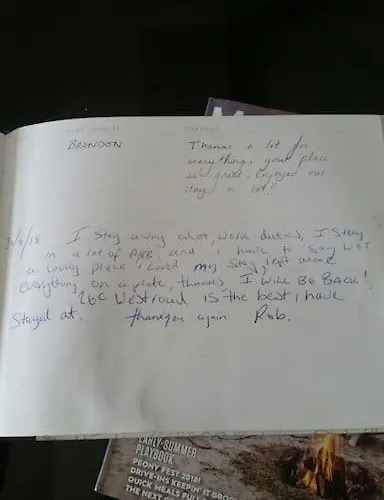 BRANDON
Thanks a lot for
everything, your place
is great. Enjoyed our
stay a lot!!
I stay away alot, work duties, I stay
in a lot of A/BB. and I have to say WOT
a lovely place I loved my stay, left alone
everything on a plate, thanks, I WILL BE BACK!
26c Westroad IS the best I have
Stayed at. thankyou again Rob.
EARLY-SUMMER
PLAYBOOK
PEONY FEST 2018!
DRIVE-INS KEEPIN' IT GROO
QUICK MEALS FULL
THE NEXT